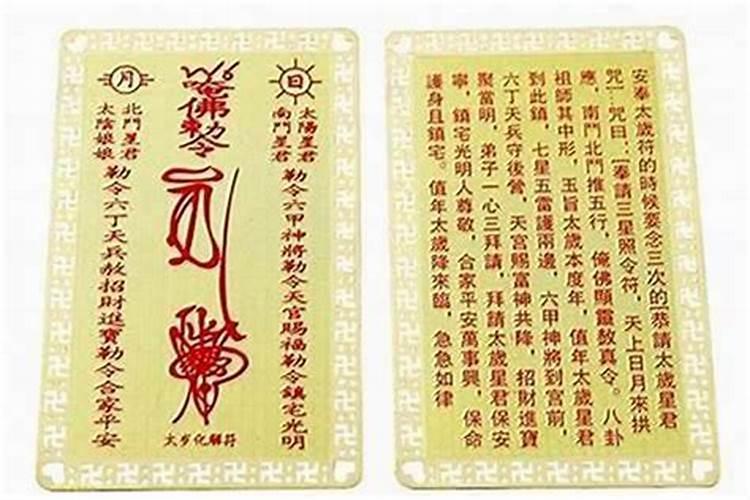 日
太陽星君
南鬥星君
勒令六甲神將勒令天官賜福勒令鎮宅光明
唵佛勅令
月
北鬥星君
太陰娘娘
勒令六丁天兵赦招財進寶勒令合家平安
太岁化解符
安奉太歲符的時候要念三次的[恭請太歲星君
咒]...咒曰:[奉請三星照令符，天上日月來拱
應，南鬥北鬥推五行，俺佛顯靈敖真令。八卦
祖師其中形，玉旨太歲本度年，值年太歲星君
到此鎮，七星五雷護兩邊，六甲神將到宮前，
六丁天兵守後營，天宮賜富神共降，招財進寶
聚當明，弟子一心三拜請，拜請太歲星君保安
寧，鎮宅光明人尊敬，合家平安萬事興，保命
護身且鎮宅。值年太歲降來臨，急急如律